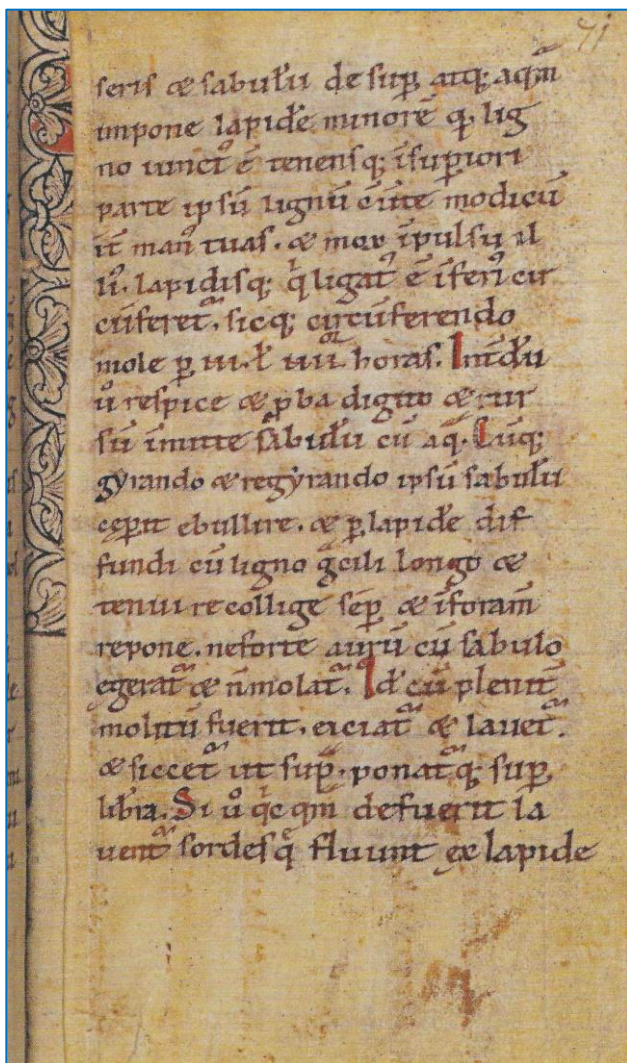 71
seris & sabulū de sup̄ atq; aqm̄
impone lapidē minorē q̨ lig
no iunct᷒ ē tenensq; īsup̄iori
parte ipsū lignū c̄iūte modicū
it man᷒ tuas. & mox īpulsu il
li᷒. lapidisq; qͥ ligat᷒ ē īferi᷒ cir
cūferet᷑. sicq; circūferendo
mole p̱ iii. ł iiii᷑ horas. Int̄dū
ů respice & ꝓba digito & rur
sū īmitte sabulū cū aq̄. Cūq;
gyrando & regyrando ipsū sabulū
cęp̱it ebullire. & p̱ lapidē dif
fundi cū ligno gͣcili longo &
tenui recollige sēp̱ & īforam̄
repone. neforte aurū cū sabulo
egerat᷑ & n̄ molat᷑. Id cū plenit̄
molitū fuerit. eiciat᷑ & lavet᷑.
& siccet᷑ ut sup̄. ponat᷑q; sup̱
librā. Si ů qͥc qm̄ defuerit la
vent᷑ sordesq̨ fluunt ex lapide